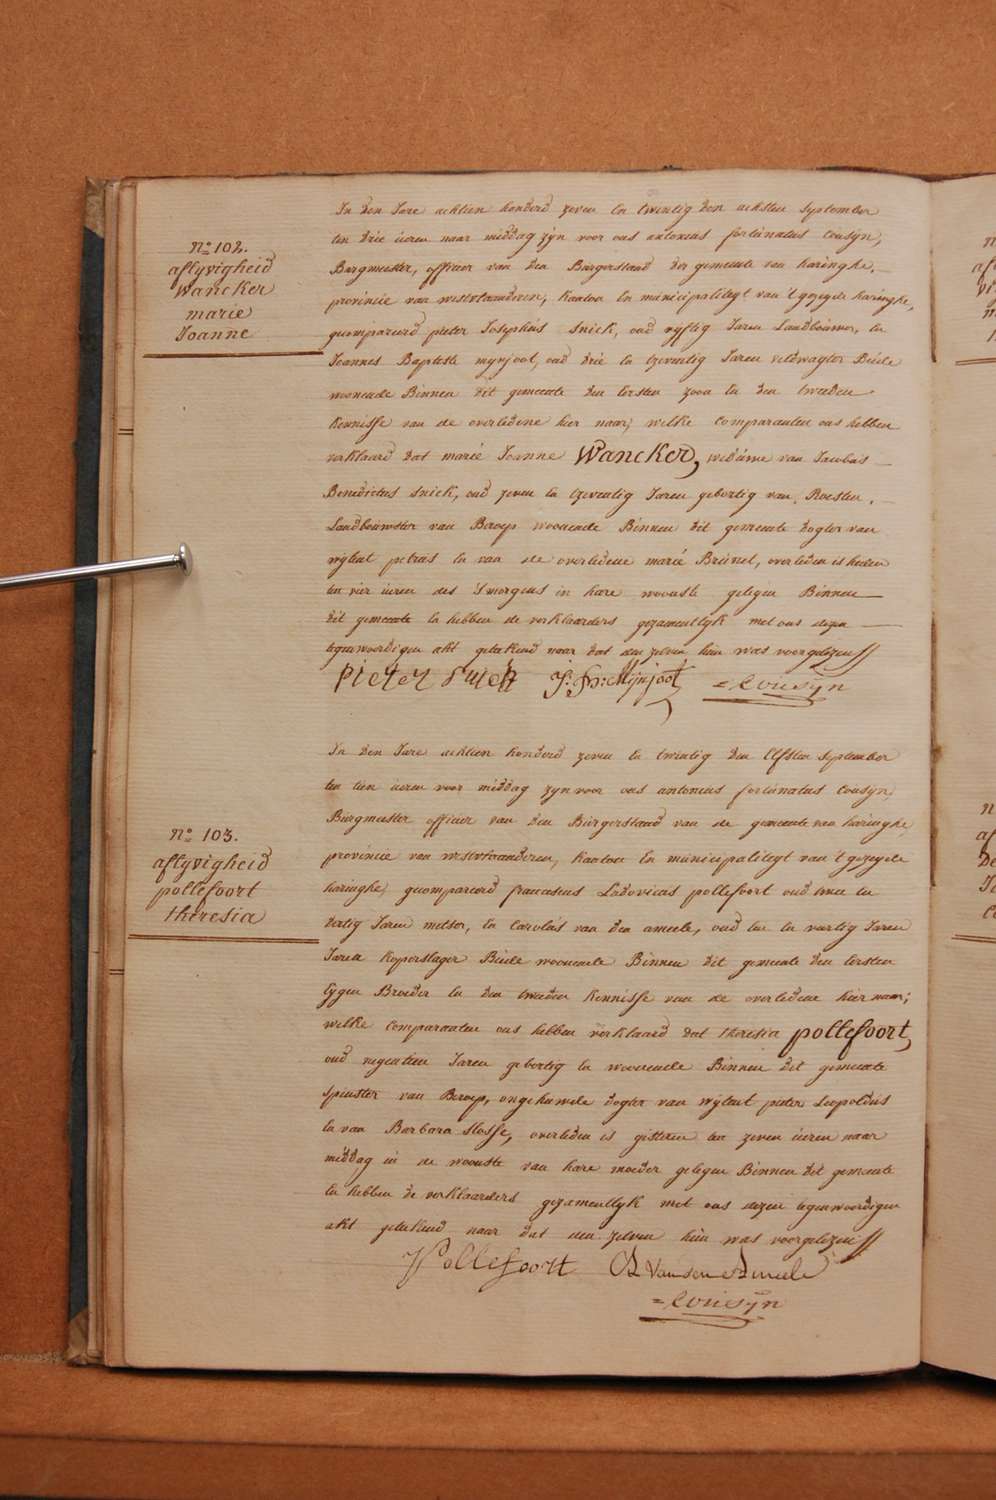 N.o 102.
aflyvigheid
Wancker
marie
Joanne
In den Jare achtien honderd zeven en twintig den achsten september
ten drie ueren naar middag zyn voor ons antonius fortunatus Cousyn,
Burgmeester, officier van den Burgerstand der gemeente van haringhe,
provincie van westvlaanderen, kanton En municipaliteyt van 't gezeyde haringhe,
gecompareerd pieter Josephus Snick, oud vyftig Jaren Landbouwer, en
Joannes Baptiste mynjoot, oud drie en tzeventig Jaren veldwagter Beide
woonende Binnen dit gemeente den Eersten zoon en den tweeden
kennisse van de overledene hier naer; welke comparanten ons hebben
verklaerd dat marie Joanne Wancker, weduwe van Jacobus
Benedictus Snick, oud zeven en tzeventig Jaren gebortig van Roesten,
Landbouwster van Beroep woonende Binnen dit gemeente dogter van
wylent petrus en van de overledene marie Brunet, overleden is heden
ten vier ueren des S'morgens in hare woonste gelegen Binnen
dit gemeente en hebben de verklaarders gezamentlyk met ons dezen
tegenwoordigen akt geteekend naar dat den zelven hun was voorgelezen //
Pieter Snick J: Bs: Mynjoot =Cousyn
N.o 103.
aflyvigheid
pollefoort
theresia
In den Jare achtien honderd zeven en twintig den Elfsten september
ten tien ueren voor middag zyn voor ons antonius fortunatus Cousyn,
Burgmeester officier van den Burgerstand van de gemeente van haringhe,
provincie van westvlaanderen, kanton En municipaliteyt van 't gezeyde
haringhe, gecompareerd franciscus Ludovicus pollefoort oud twee en
dertig Jaren metser, en Carolus van den ameele, oud een en veertig Jaren
Jaren koperslager Beide woonende Binnen dit gemeente den Eersten
Eygen Broeder en den tweeden kennisse van de overledene hier naer;
welke comparanten ons hebben verklaard dat theresia pollefoort,
oud negentien Jaren gebortig en woonende Binnen dit gemeente
spinster van Beroep, ongehuwde dogter van wylent pieter Leopoldus
en van Barbara Stosse, overleden is gisteren ten zeven ueren naar
middag in de woonste van hare moeder gelegen Binnen dit gemeente
en hebben de verklaarders gezamentlyk met ons dezen tegenwoordigen
akt geteekend naar dat den zelven hun was voorgelezen //
Pollefoort C Vanden Ameele
=Cousyn